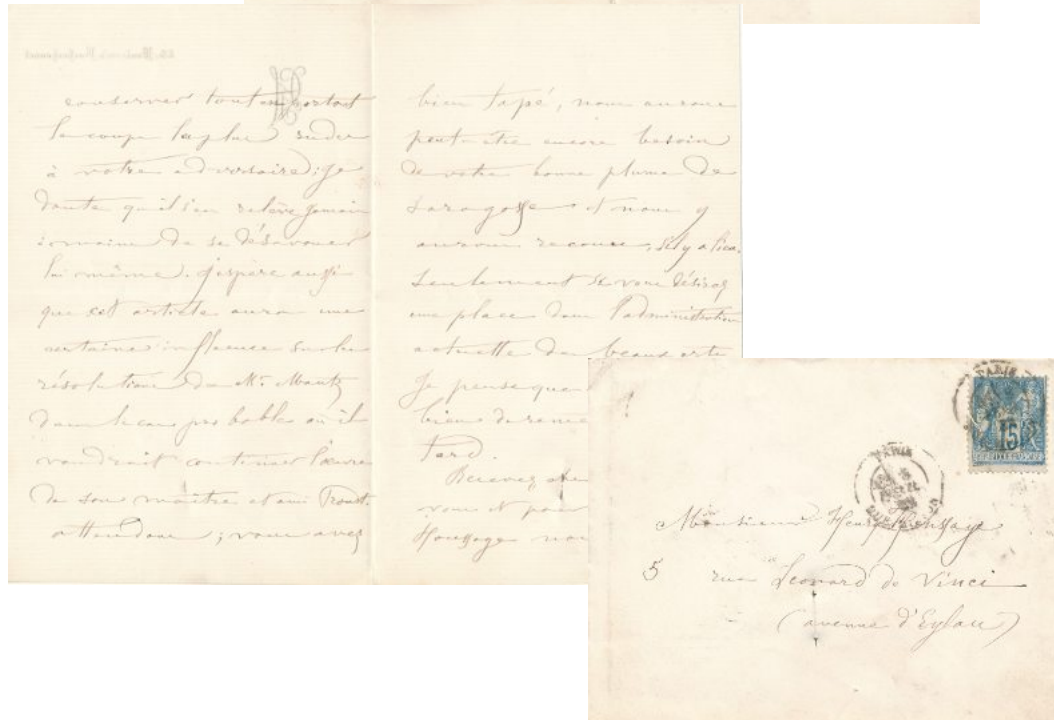 conserver tout en portant
le coup le plus rude
à votre adversaire; je
doute qu'il s'en relève jamais
à moins de se désavouer
lui même. J'espère aussi
que cet artiste aura une
certaine influence sur les
résolutions de Mr. Mantz
dans le cas probable où il
voudrait continuer l'œuvre
de son maitre et ami Proust.
attendons; vous avez
bien tapé, nous aurons
peut-être encore besoin
de votre bonne plume de
Saragosse et nous y
aurons recours, s'il y a lieu.
Seulement si vous désirez
une place dans l'administration
actuelle des beaux arts
Je pense que
bien de
tard.
Recevez
vous et pour
Houssaye
PARIS
15
PARIS
Monsieur Henry Houssaye
5 rue Léonard de Vinci
(avenue d'Eylau)